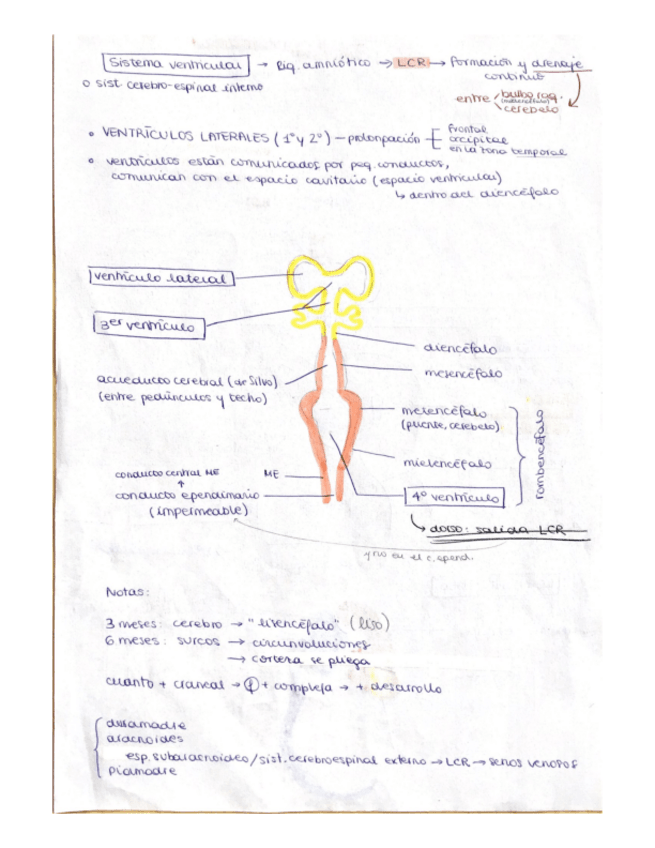 Sistema ventricular → liq. amniótico → LCR → formación y drenaje continuo
o sist. cerebro-espinal interno
entre bulbo raq. (mielencéfalo)
cerebelo
• VENTRÍCULOS LATERALES (1º y 2º) — prolongación
frontal
occipital
en la zona temporal
• ventrículos están comunicados por peq. conductos,
comunican con el espacio cavitario (espacio ventricular)
↳ dentro del diencéfalo
ventrículo lateral
3er ventrículo
diencéfalo
mesencéfalo
acueducto cerebral (de Silvo)
(entre pedúnculos y techo)
metencéfalo
(puente, cerebelo)
rombencéfalo
mielencéfalo
conducto central ME
↑
ME
conducto ependimario
(impermeable)
4º ventrículo
↳ dorso: salida LCR
y no en el c. epend.
Notas:
3 meses: cerebro → "lisencéfalo" (liso)
6 meses: surcos → circunvoluciones
→ corteza se pliega
cuanto + craneal → + compleja → + desarrollo
duramadre
aracnoides
esp. subaracnoideo/sist. cerebroespinal externo → LCR → senos venosos
piamadre